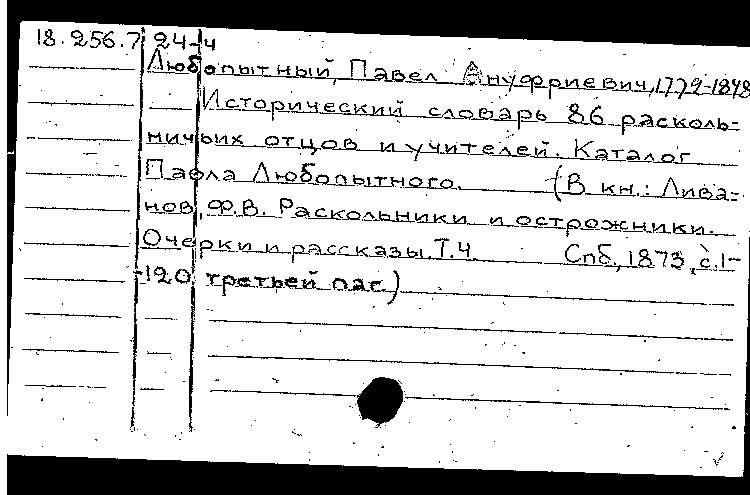 18.256.7 24-4
Любопытный, Павел Ануфриевич, 1772-1848
Исторический словарь 86 расколь-
ничьих отцов и учителей. Каталог
Павла Любопытного. (В кн.: Лива-
нов, Ф.В. Раскольники и острожники.
Очерки и рассказы. Т.4 Спб., 1873, с.1-
-120 третьей паг.)